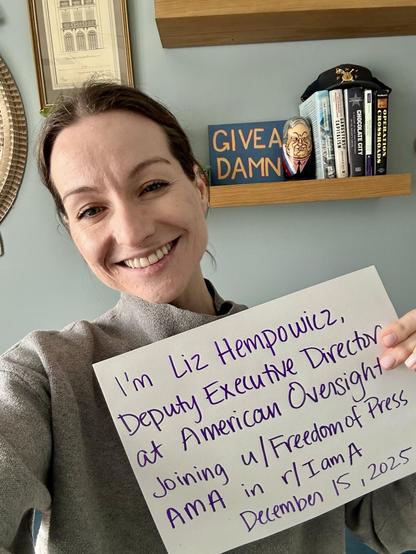 GIVE A
DAMN
CHOCOLATE CITY
I'm Liz Hempowicz,
Deputy Executive Director
at American Oversight
joining u/FreedomofPress
AMA in r/IamA
December 15, 2025